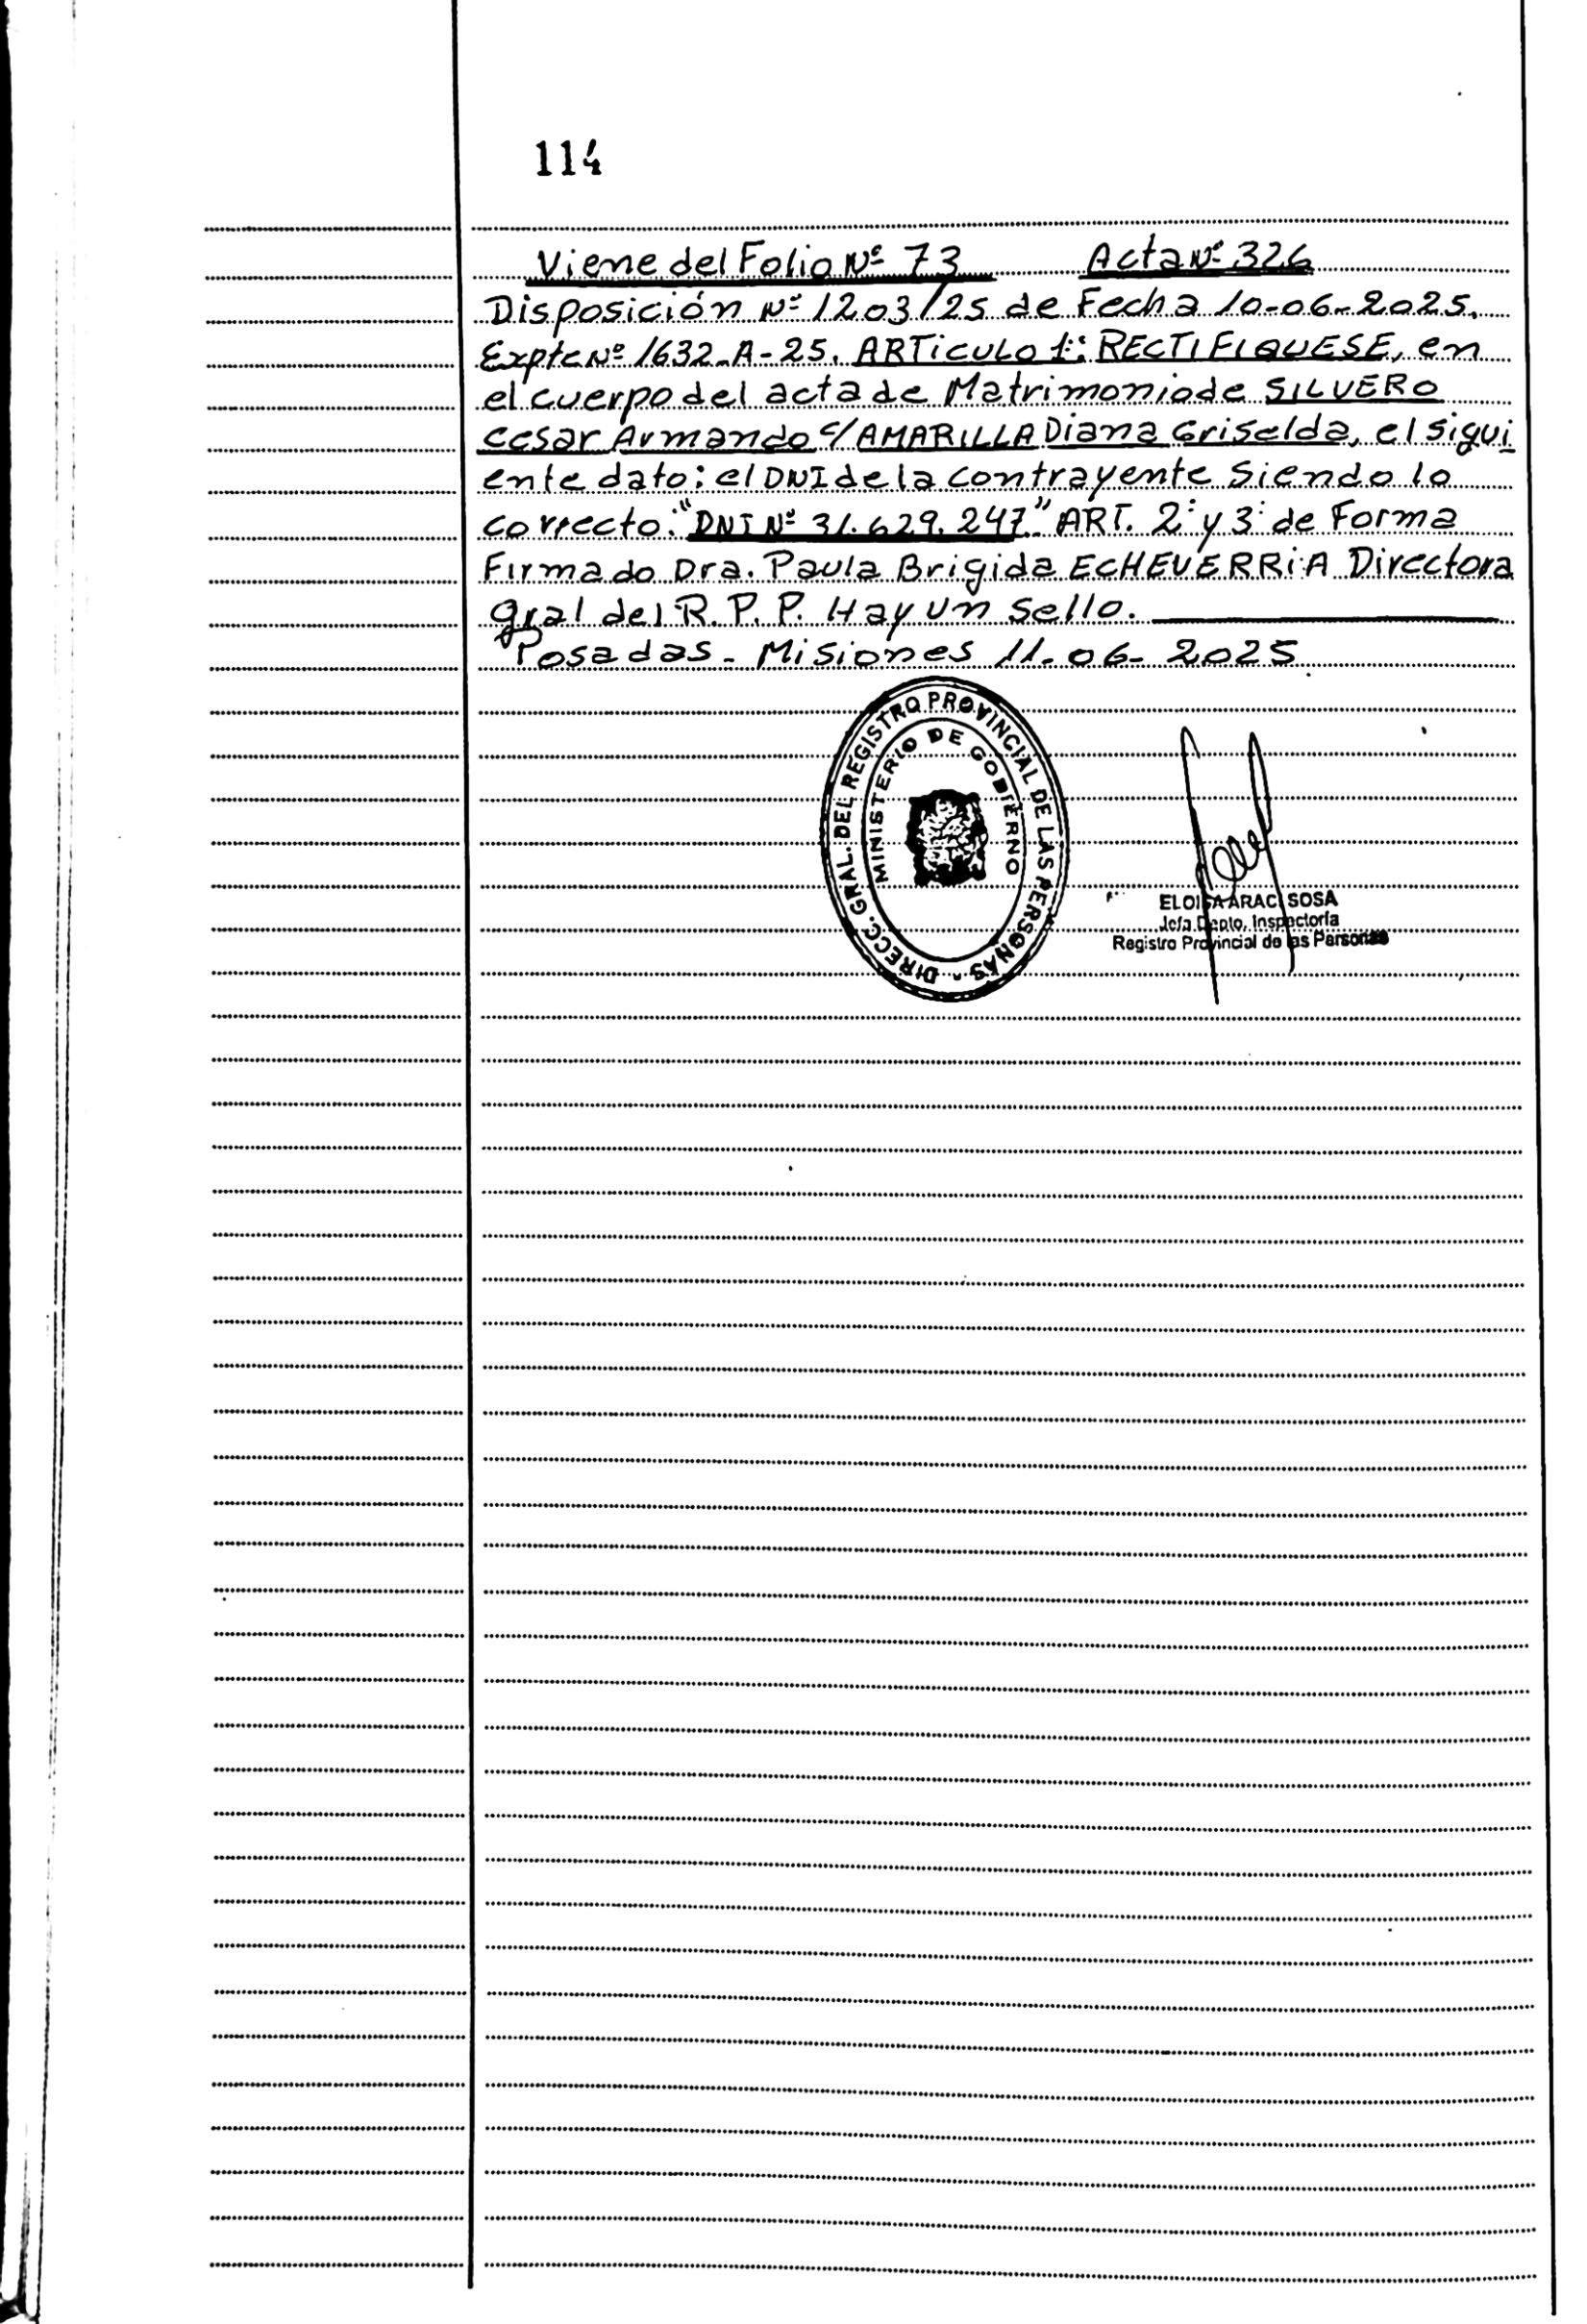 114
Viene del Folio Nº 73 Acta Nº 326
Disposición Nº 1203/25 de Fecha 10-06-2025.
Expte Nº 1632-A-25. ARTiCULO 1º: RECTIFIQUESE, en
el cuerpo del acta de Matrimonio de SILVERO
Cesar Armando c/ AMARILLA Diana Griselda, el sigui
ente dato: el DNI de la contrayente siendo lo
correcto: "DNI Nº 31.629.247" ART. 2º y 3º de Forma
Firmado Dra. Paula Brigida ECHEVERRiA Directora
gral del R.P.P. Hay un sello.
Posadas - Misiones 11-06-2025
DIRECC. GRAL. DEL REGISTRO PROVINCIAL DE LAS PERSONAS -
MINISTERIO DE GOBIERNO
ELOISA ARACI SOSA
Jefa Depto. Inspectoría
Registro Provincial de las Personas